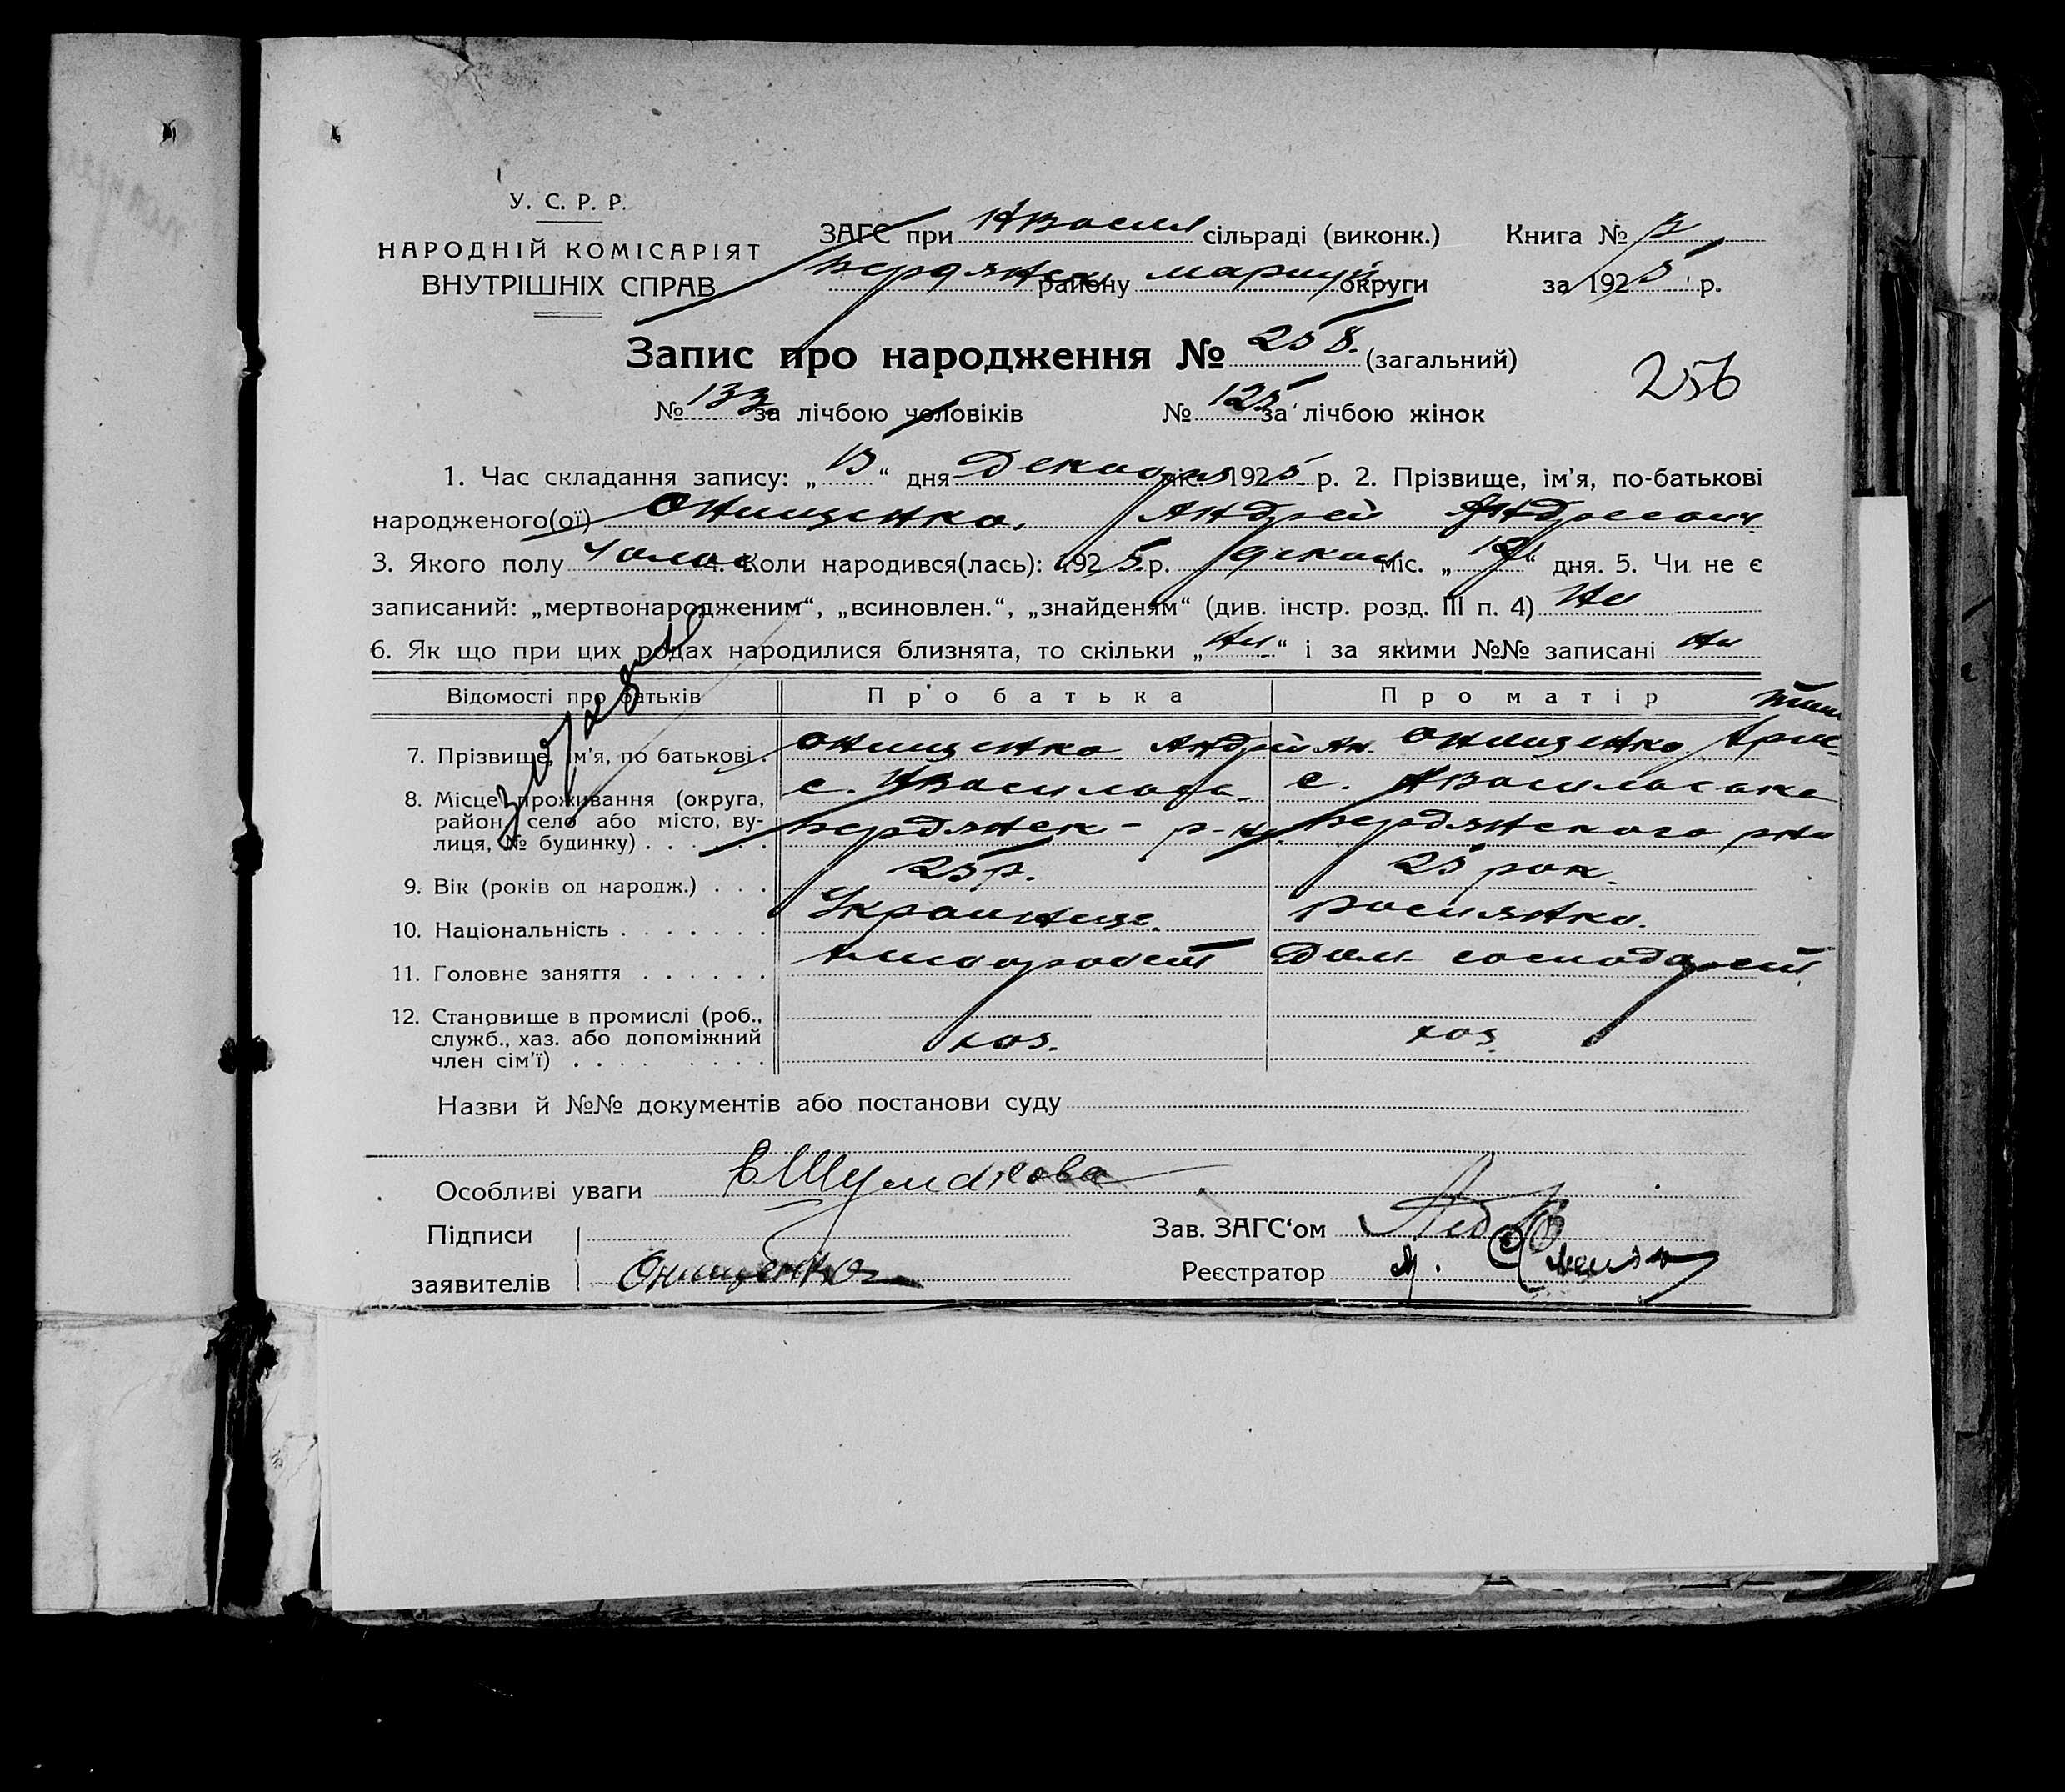 У. С. Р. Р.
НАРОДНІЙ КОМІСАРІЯТ
ВНУТРІШНІХ СПРАВ
ЗАГС при НВасил сільраді (виконк.)
Бердянськ району маріуп округи
Книга №
за 1925 р.
Запис про народження № 258. (загальний)
256
№ 133 за лічбою чоловіків № 125 за лічбою жінок
1. Час складання запису: „ “ дня Декабря міс. 1925 р. 2. Прізвище, ім'я, по-батькові
народженого(ої) Онищенко. Андрей Андреевич
3. Якого полу Чолов 4. Коли народився(лась): 1925 р. декаб міс. „ “ дня. 5. Чи не є
записаний: „мертвонародженим“, „всиновлен.“, „знайденям“ (див. інстр. розд. III п. 4) Ни
6. Як що при цих родах народилися близнята, то скільки „Ни“ і за якими №№ записані Ни
Відомості про батьків Про батька Про матір
7. Прізвище, ім'я, по батькові . Онищенко Андрей Ан. Онищенко
8. Місце проживання (округа, с. НВасильев. с. НВасильевка
район, село або місто, ву- Бердянск - р-ну. Бердянского рна
лиця, № будинку) . . . . . .
9. Вік (років од народж.) . . . 25 р. 25 рок.
10. Національність . . . . . . . Украинец. росиянка.
11. Головне заняття . . . . . . хлиборобст Дом господарст
12. Становище в промислі (роб.,
служб., хаз. або допоміжний хоз. хоз
член сім'ї) . . . . . . . .
Назви й №№ документів або постанови суду
Особливі уваги
Підписи
заявителів Онищенко
Зав. ЗАГС'ом
Реєстратор